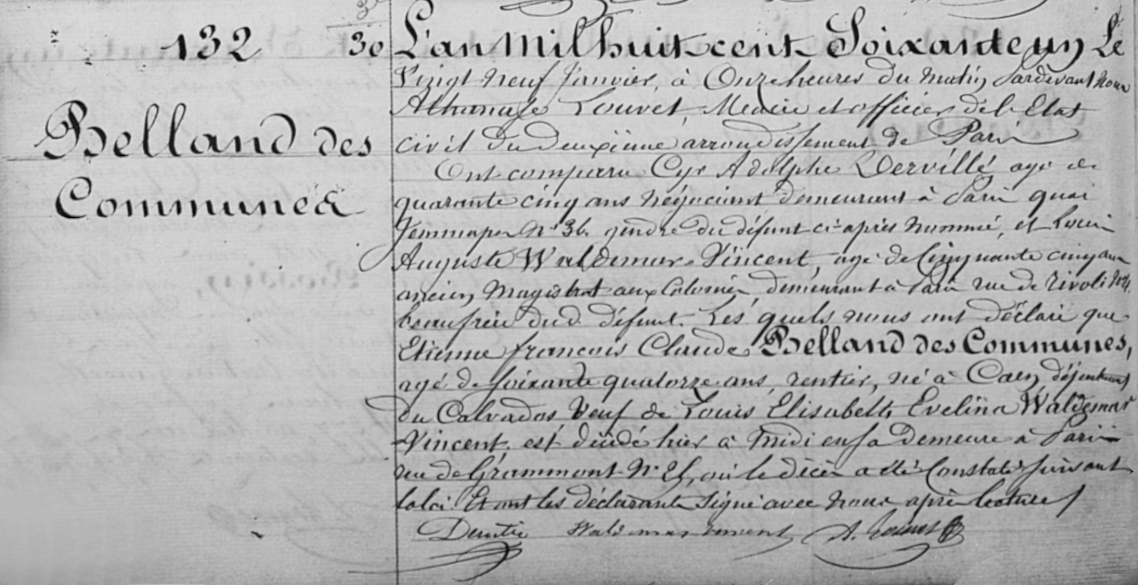 132
30
Belland des
Communes
L'an mil huit cent Soixante un Le
Vingt neuf Janvier, à Onze heures du matin Pardevant nous
Athanase Louvet, Maire et officier de l'Etat
civil du deuxième arrondissement de Paris
Ont comparu Cyr Adolphe Derville agé de
quarante cinq ans négociant demeurant à Paris quai
Jemmapes No 36. gendre du défunt ci-après nommé, et Louis
Auguste Waldemar Vincent, agé de Cinquante cinq ans
ancien Magistrat aux Colonies demeurant à Paris rue de Rivoli
beaufrère dud. défunt. Les quels nous ont déclaré que
Etienne françois Claude Belland des Communes,
agé de soixante quatorze ans, rentier, né à Caen,
du Calvados Veuf de Louis Elisabeth Evelina Waldemar
Vincent, est décédé hier à Midi en sa demeure à Paris
rue de Grammont No où le décès a été Constaté suivant
la loi Et ont les déclarants Signé avec nous après lecture /
Waldemar Vincent A. Louvet